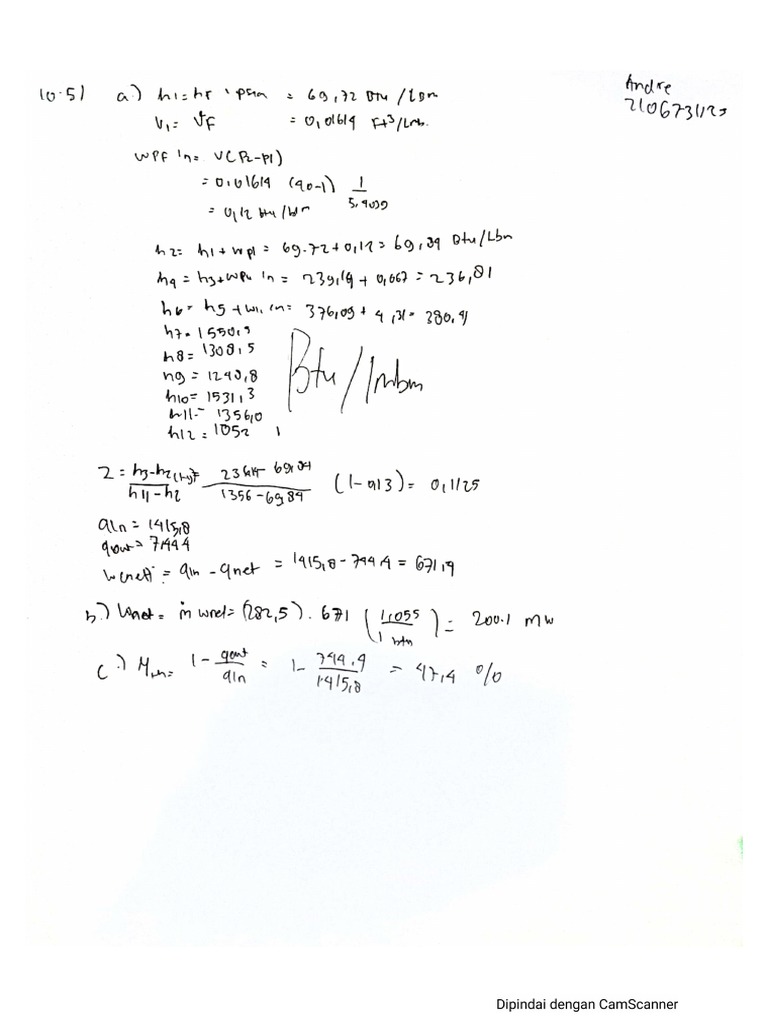 Andre
10.51 a.) h1 = hf 1 psia = 69,72 Btu/Lbm
V1 = Vf = 0,01614 Ft3/Lmb.
WPF in = V(P2-P1)
= 0,01614 (40-1) 1/5,4039
= 0,12 btu/lbm
h2 = h1 + wp1 = 69.72 + 0,12 = 69,84 Btu/Lbm
h4 = h3 + wpu in = 236,14 + 0,667 = 236,81
h6 = h5 + w.. in = 376,09 + 4,31 = 380,41
h7 = 1550,5
h8 = 1308,5
h9 = 1248,8
h10 = 1531,3
h11 = 1356,0
h12 = 1052
Btu/lmbm
Z = h3-h2/h11-h2 = 236,14 - 69,84/1356-69,84 (1-0,13) = 0,1125
qin = 1415,8
qout = 744.4
wnett = qin - qnet = 1415,8 - 744.4 = 671,4
b.) Wnet = ṁ wnet = (282,5) . 671 (1,055/1 btu) = 200.1 MW
c.) η = 1 - qout/qin = 1 - 744,4/1415,8 = 47,4 %
Dipindai dengan CamScanner